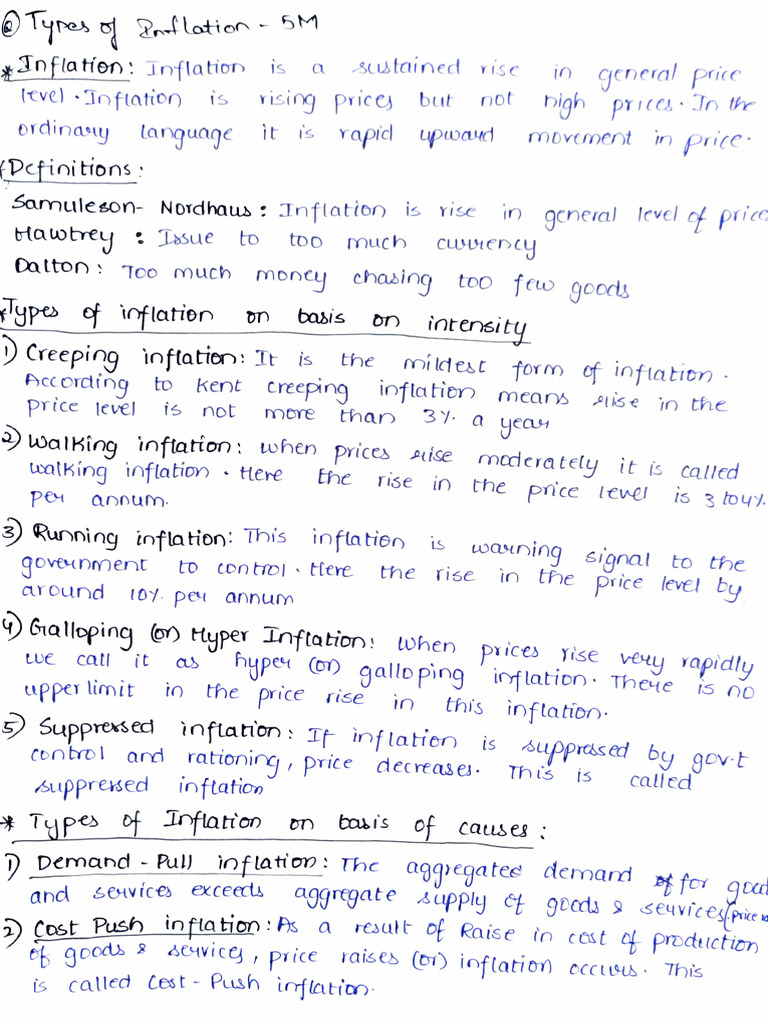 ② Types of Inflation - 5M
* Inflation: Inflation is a sustained rise in general price
level. Inflation is rising prices but not high prices. In the
ordinary language it is rapid upward movement in price.
* Definitions:
Samuleson- Nordhaus: Inflation is rise in general level of price
Hawtrey : Issue to too much currency
Dalton: Too much money chasing too few goods
* Types of inflation on basis on intensity
1) Creeping inflation: It is the mildest form of inflation.
According to Kent creeping inflation means rise in the
price level is not more than 3%. a year
2) Walking inflation: when prices rise moderately it is called
walking inflation. Here the rise in the price level is 3 to 4%.
per annum.
3) Running inflation: This inflation is warning signal to the
government to control. Here the rise in the price level by
around 10%. per annum
4) Galloping (or) Hyper Inflation: when prices rise very rapidly
we call it as hyper (or) galloping inflation. There is no
upper limit in the price rise in this inflation.
5) Suppressed inflation: If inflation is suppressed by gov.t
control and rationing, price decreases. This is called
suppressed inflation
* Types of Inflation on basis of causes:
1) Demand-Pull inflation: The aggregated demand for good
and services exceeds aggregate supply of goods & services (price
2) Cost Push inflation: As a result of Raise in cost of production
of goods & services, price raises (or) inflation occurs. This
is called Cost-Push inflation.